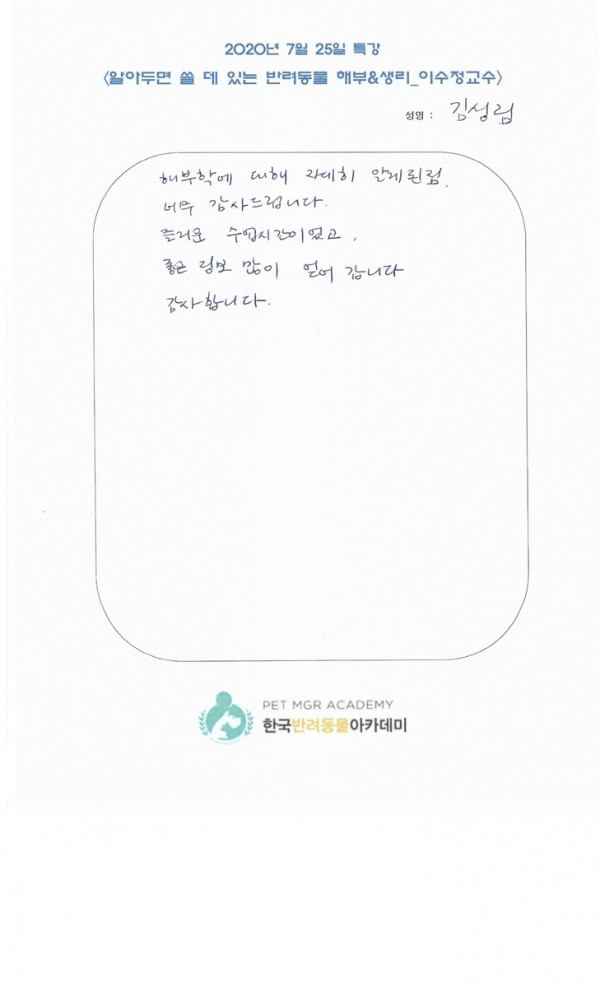 2020년 7월 25일 특강
<알아두면 쓸 데 있는 반려동물 해부&생리_이수정교수>
성명 : 김성림
해부학에 대해 자세히 알게된점.
너무 감사드립니다.
즐거운 수업시간이었고,
좋은 정보 많이 얻어 갑니다
감사합니다.
PET MGR ACADEMY
한국반려동물아카데미